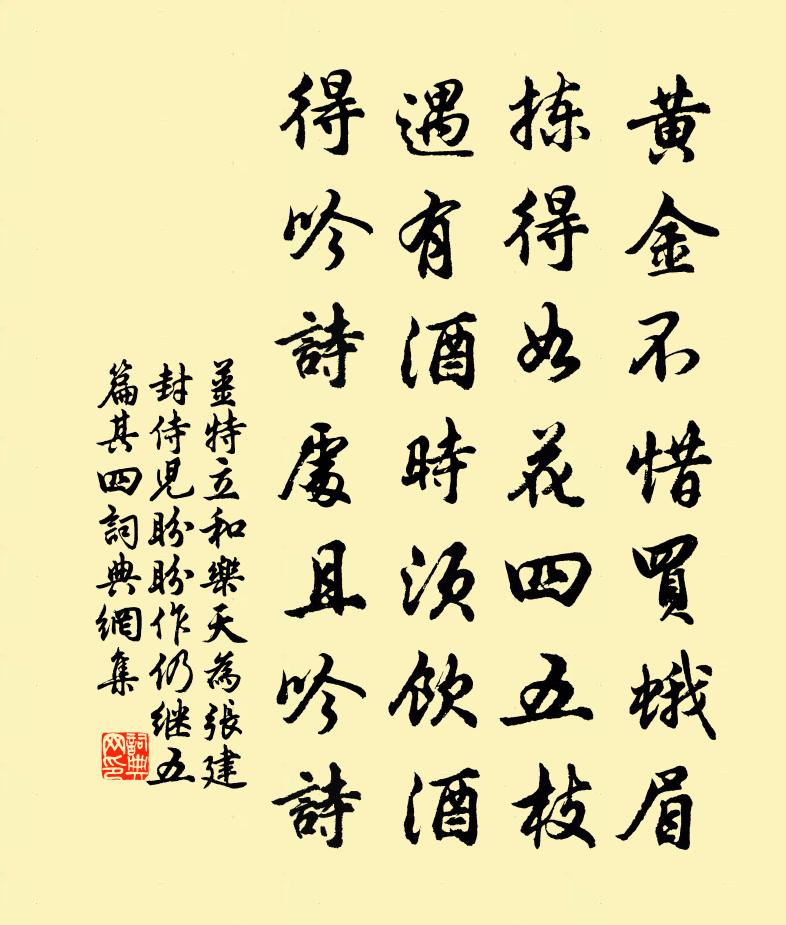 黄金不惜買蛾眉
揀得如花四五枝
遇有酒時須飲酒
得吟詩處且吟詩
姜特立和樂天為張建
封侍児盼盼作仍继五
篇其四詞典網集
詞典
网印